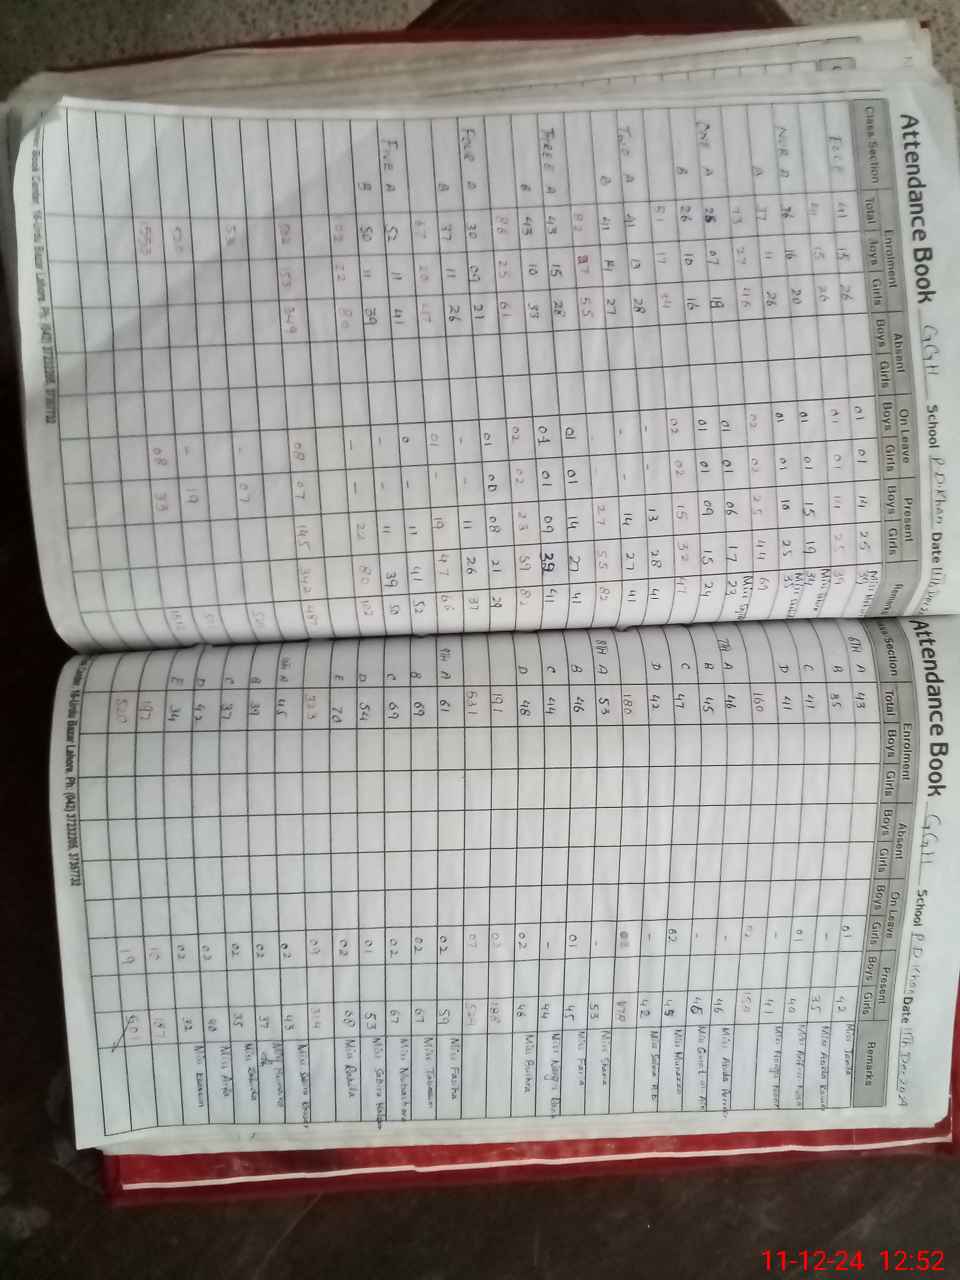 Attendance Book GGH School P.D.Khan Date 11th Dec 2
Class/Section Enrolment Absent On Leave Present Remarks
Total Boys Girls Boys Girls Boys Girls Boys Girls
ECCE 41 15 26 01 01 14 25 39
41 15 26 01 01 14 25 39
NUR A 36 16 20 01 01 15 19 34
B 37 11 26 01 01 10 25 35
73 27 46 02 02 25 44 69
ONE A 25 07 18 01 01 06 17 23
B 26 10 16 01 01 09 15 24
51 17 34 02 02 15 32 47
TWO A 41 13 28 - - 13 28 41
B 41 14 27 - - 14 27 41
82 27 55 - - 27 55 82
THREE A 43 15 28 01 01 14 27 41
B 43 10 33 01 01 09 32 41
86 25 61 02 02 23 59 82
FOUR A 30 09 21 01 00 08 21 29
B 37 11 26 - - 11 26 37
67 20 47 01 - 19 47 66
FIVE A 52 11 41 0 - 11 41 52
B 50 11 39 - - 11 39 50
102 22 80 - - 22 80 102
502 153 349 08 07 145 342 487
53 - 07
520 - 19
08 33
New Book Center, 16-Urdu Bazar Lahore. Ph: (042) 37232205, 37357732
Attendance Book GGH School P.D Khan Date 11th Dec 2024
Class/Section Enrolment Absent On Leave Present Remarks
Total Boys Girls Boys Girls Boys Girls Boys Girls
6TH A 43 01 42
B 35 - 35
C 41 01 40
D 41 - 41
160 02 158
7TH A 46 - 46
B 45 - 45
C 47 02 45 Miss Munazza
D 42 - 42
180 02 178
8TH A 53 - 53
B 46 01 45 Miss Faria
C 44 - 44
D 48 02 46 Miss Bushra
191 03 188
531 07 524
9TH A 61 02 59
B 69 02 67 Miss Tabassum
C 69 02 67 Miss Mubashara
D 54 01 53
E 70 02 68 Miss Rahila
323 09 314
10th A 45 02 43
B 39 02 37
C 37 02 35
D 42 02 40
E 34 02 32
197 10 187
520 19 501
16-Urdu Bazar Lahore. Ph: (042) 37232205, 37357732
11-12-24 12:52